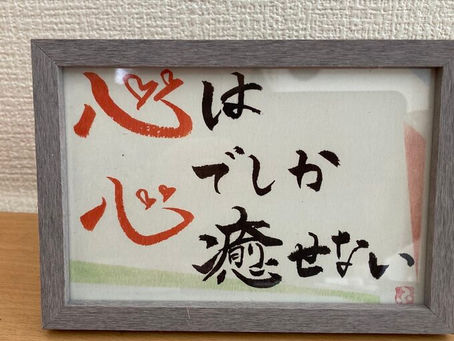 心は
心でしか
癒せない